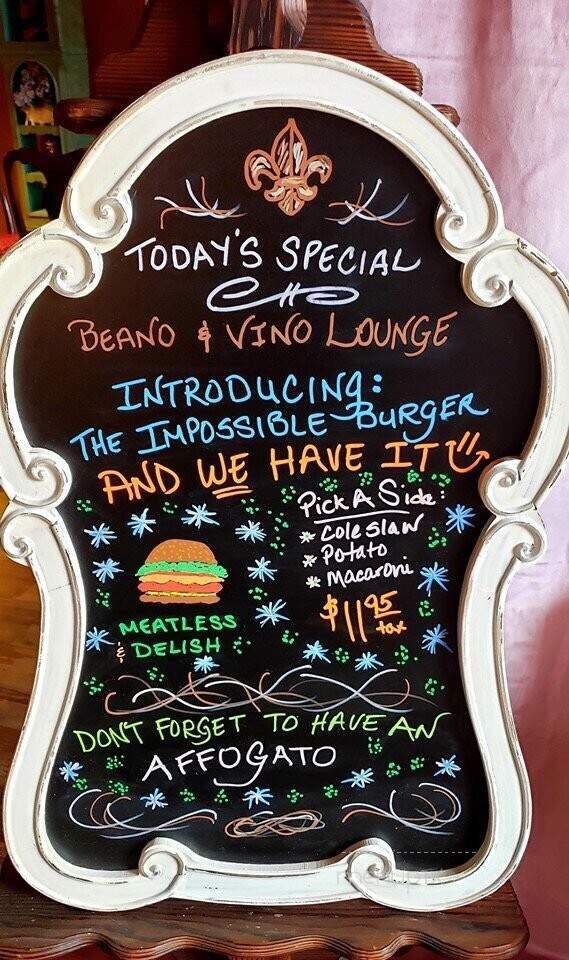 TODAY'S SPECIAL
BEANO & VINO LOUNGE
INTRODUCING:
THE IMPOSSIBLE BURGER
AND WE HAVE IT
Pick A Side:
* Coleslaw
* Potato
* Macaroni
$11.95
tax
MEATLESS
& DELISH
DONT FORGET TO HAVE AN
AFFOGATO